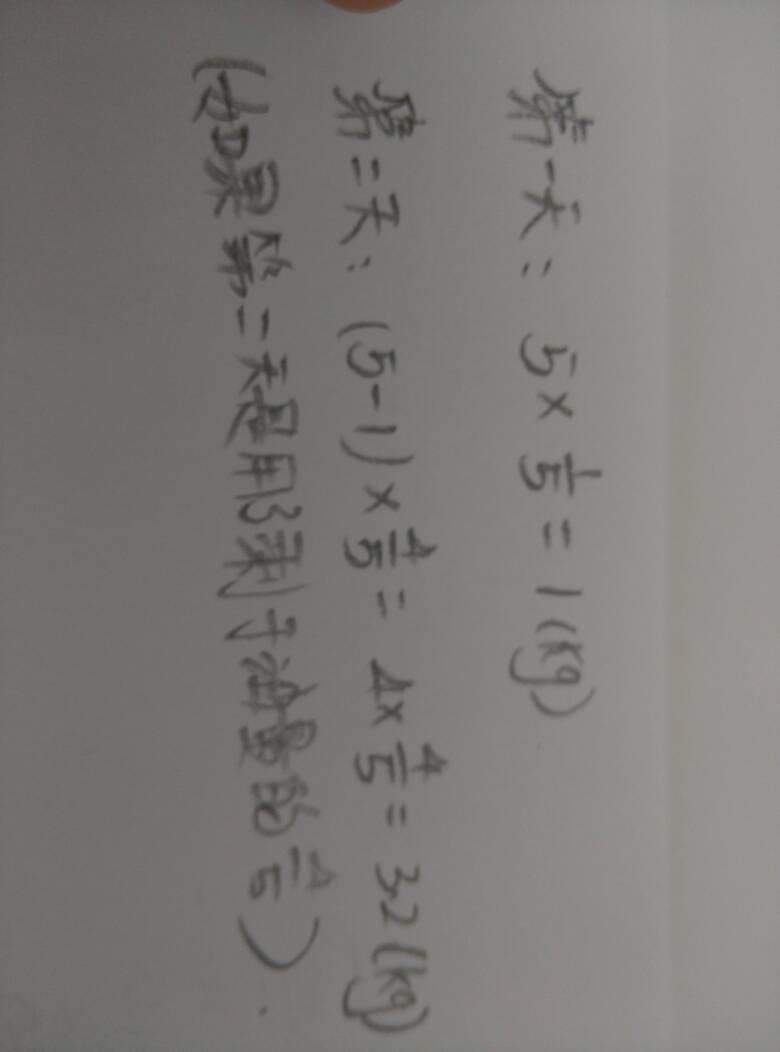 第一天： 5×1/5＝1(kg)
第二天：(5-1)×4/5＝ 4×4/5＝3.2(kg)
(如果第二天是用了剩于油量的4/5).